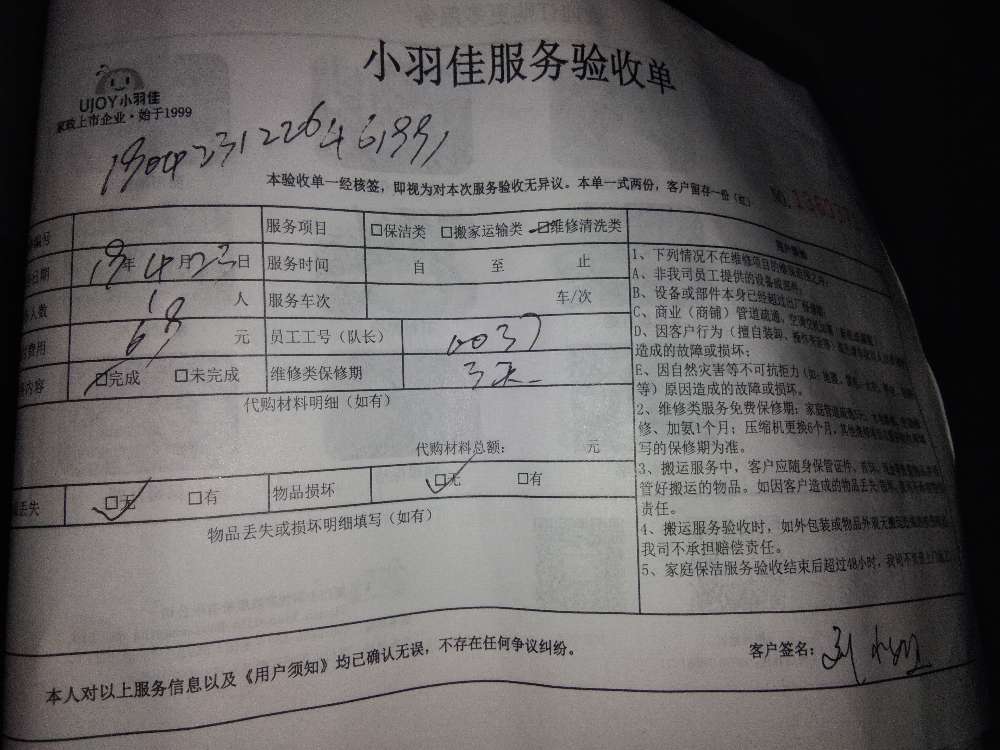 小羽佳服务验收单
UJOY小羽佳
家政上市企业·始于1999
190423122646199
本验收单一经核签，即视为对本次服务验收无异议。本单一式两份，客户留存一份（红）
编号 服务项目 □保洁类 □搬家运输类 □维修清洗类
日期 19年4月23日 服务时间 自 至 止
人数 1人 服务车次 车/次
费用 68元 员工工号（队长） 0037
内容 □完成 □未完成 维修类保修期 3天
代购材料明细（如有）
代购材料总额： 元
丢失 □无 □有 物品损坏 □无 □有
物品丢失或损坏明细填写（如有）
1、下列情况不在维修项目的
A、非我司员工提供的设备或部件
B、设备或部件本身已经超过出厂
C、商业（商铺）管道疏通，空调
D、因客户行为（擅自装卸、
造成的故障或损坏；
E、因自然灾害等不可抗拒力（如：地震，
等）原因造成的故障或损坏。
2、维修类服务免费保修期：家庭管道疏通
修、加氨1个月；压缩机更换6个月，其他
写的保修期为准。
3、搬运服务中，客户应随身保管证件、
管好搬运的物品。如因客户造成的物品丢失
责任。
4、搬运服务验收时，如外包装或物品外观无
我司不承担赔偿责任。
5、家庭保洁服务验收结束后超过48小时，我司不
本人对以上服务信息以及《用户须知》均已确认无误，不存在任何争议纠纷。
客户签名：刘